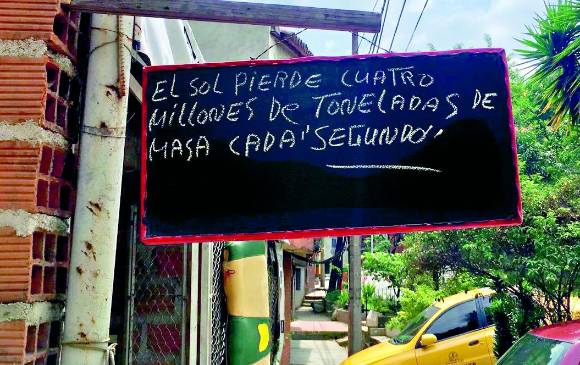 EL SOL PIERDE CUATRO
MILLONES DE TONELADAS DE
MASA CADA "SEGUNDO"